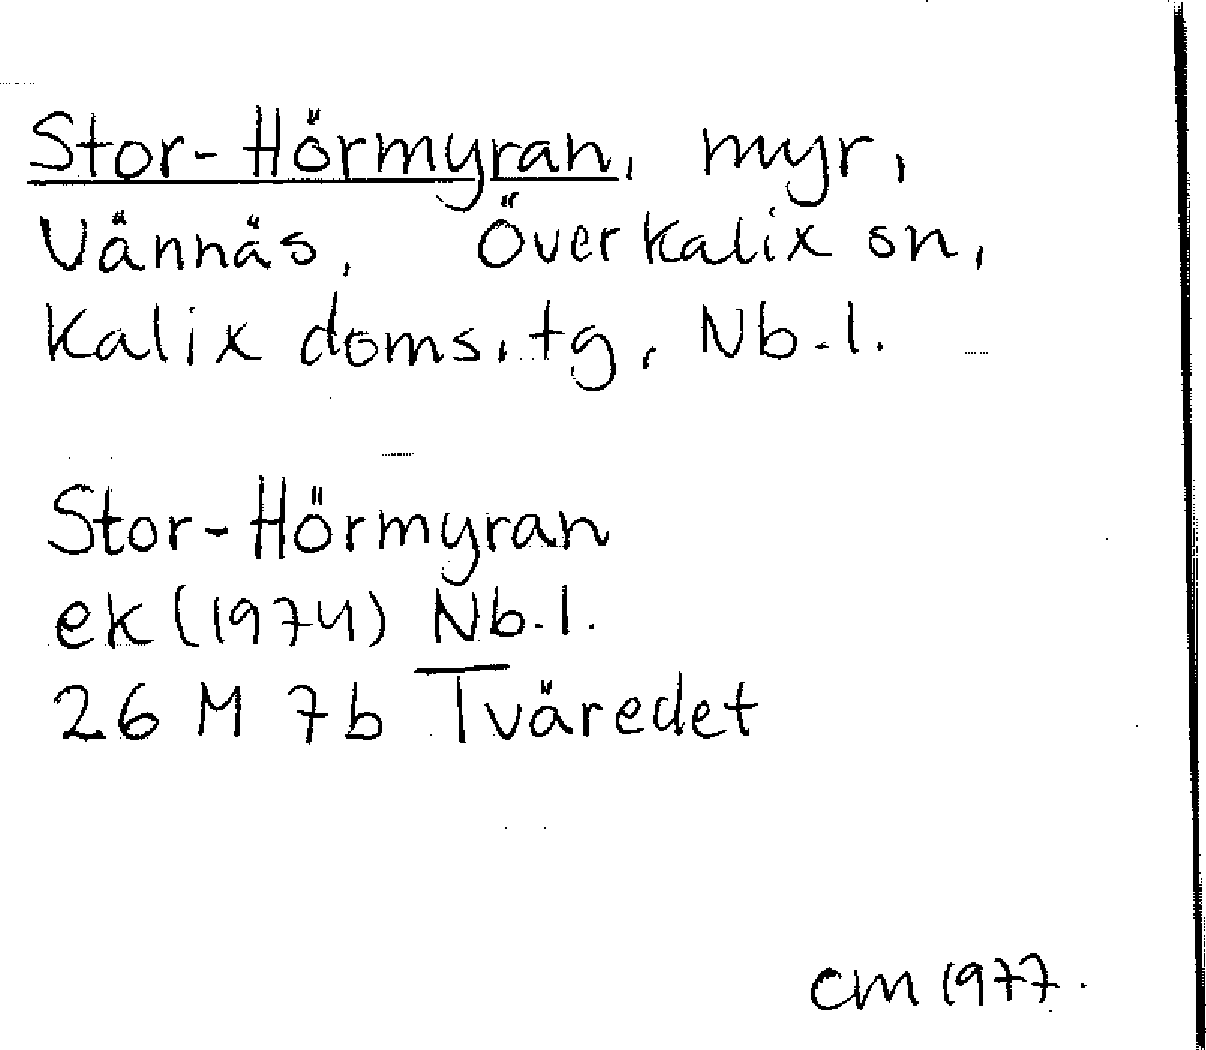 Stor-Hörmyran, myr,
Vännäs, Överkalix sn,
Kalix doms. tg, Nb. l.
Stor-Hörmyran
ek (1974) Nb. l.
26 M 7b Tväredet
CM 1977.